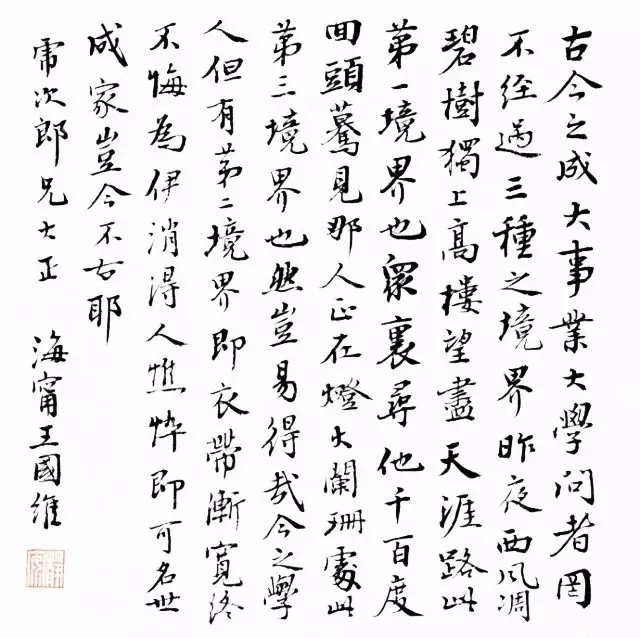 古今之成大事業大學問者罔
不經過三種之境界昨夜西風凋
碧樹獨上高樓望盡天涯路此
第一境界也眾裏尋他千百度
回頭驀見那人正在燈火闌珊處此
第三境界也然豈易得哉今之學
人但有第二境界即衣帶漸寬終
不悔為伊消得人憔悴即可名世
成家豈今不古耶
乕次郎兄大正 海甯王國維